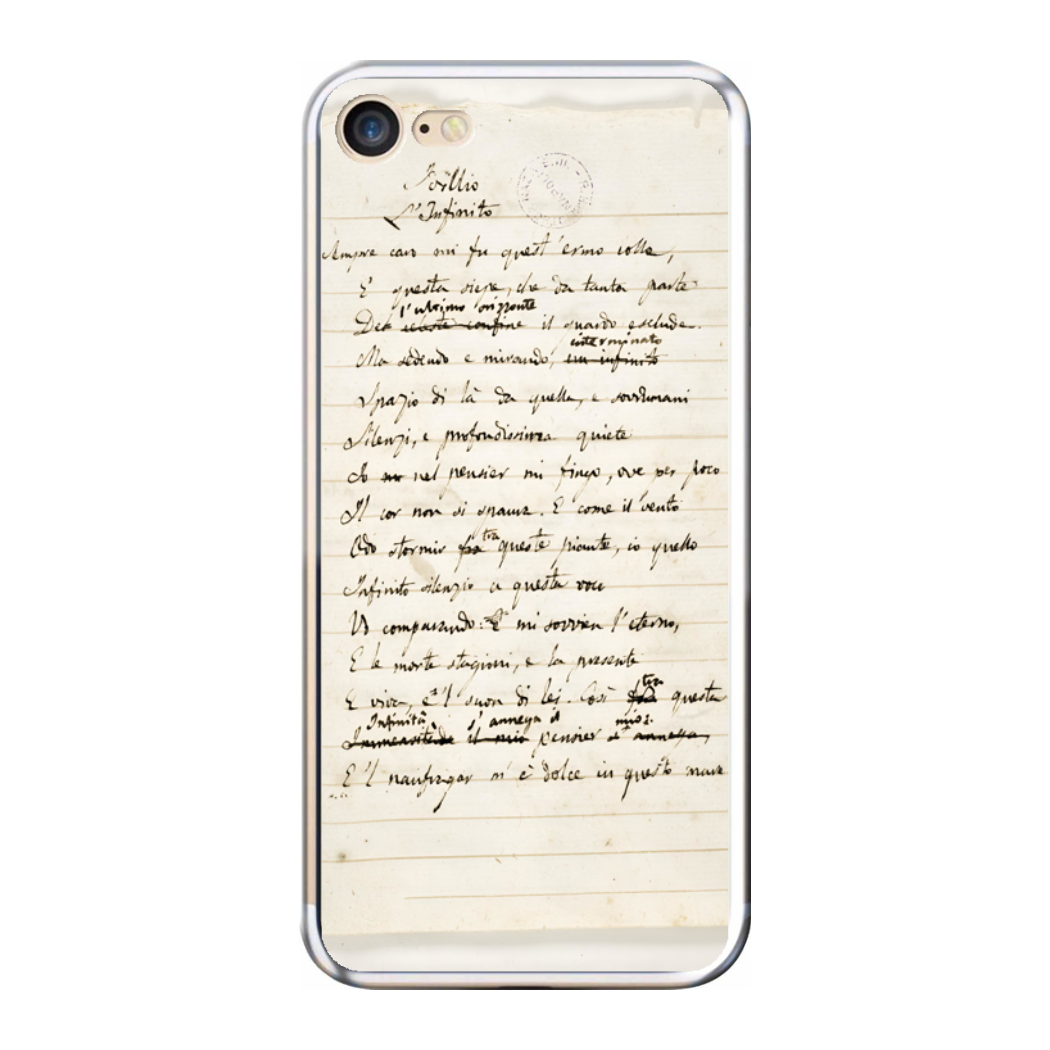 Idillio
L'Infinito
Sempre caro mi fu quest'ermo colle,
E questa siepe, che da tanta parte
l'ultimo orizzonte
Del celeste confine il guardo esclude.
interminato
Ma sedendo e mirando, un infinito
Spazio di là da quella, e sovrumani
Silenzi, e profondissima quiete
Io nel pensier mi fingo, ove per poco
Il cor non si spaura. E come il vento
tra
Odo stormir fra queste piante, io quello
Infinito silenzio a questa voce
Vo comparando: E mi sovvien l'eterno,
E le morte stagioni, e la presente
tra
E viva, e 'l suon di lei. Così fra questa
Infinità s'annega il mio:
Immensitade il mio pensier s'annega,
E 'l naufragar m'è dolce in questo mare